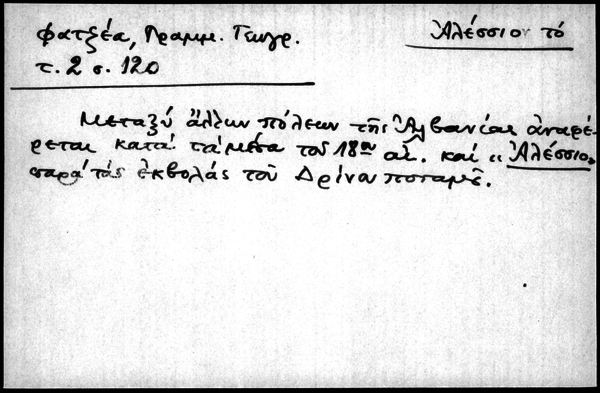 Φατζέα, Γραμμ. Γεωγρ.
Ἀλέσσιον τό
τ. 2 σ. 120
Μεταξύ ἄλλων πόλεων τῆς Ἀλβανίας ἀναφέ-
ρεται κατά τά μέσα τοῦ 18ου αἰ. καί "Ἀλέσσιο"
παρά τάς ἐκβολάς τοῦ Δρίνου ποταμοῦ.